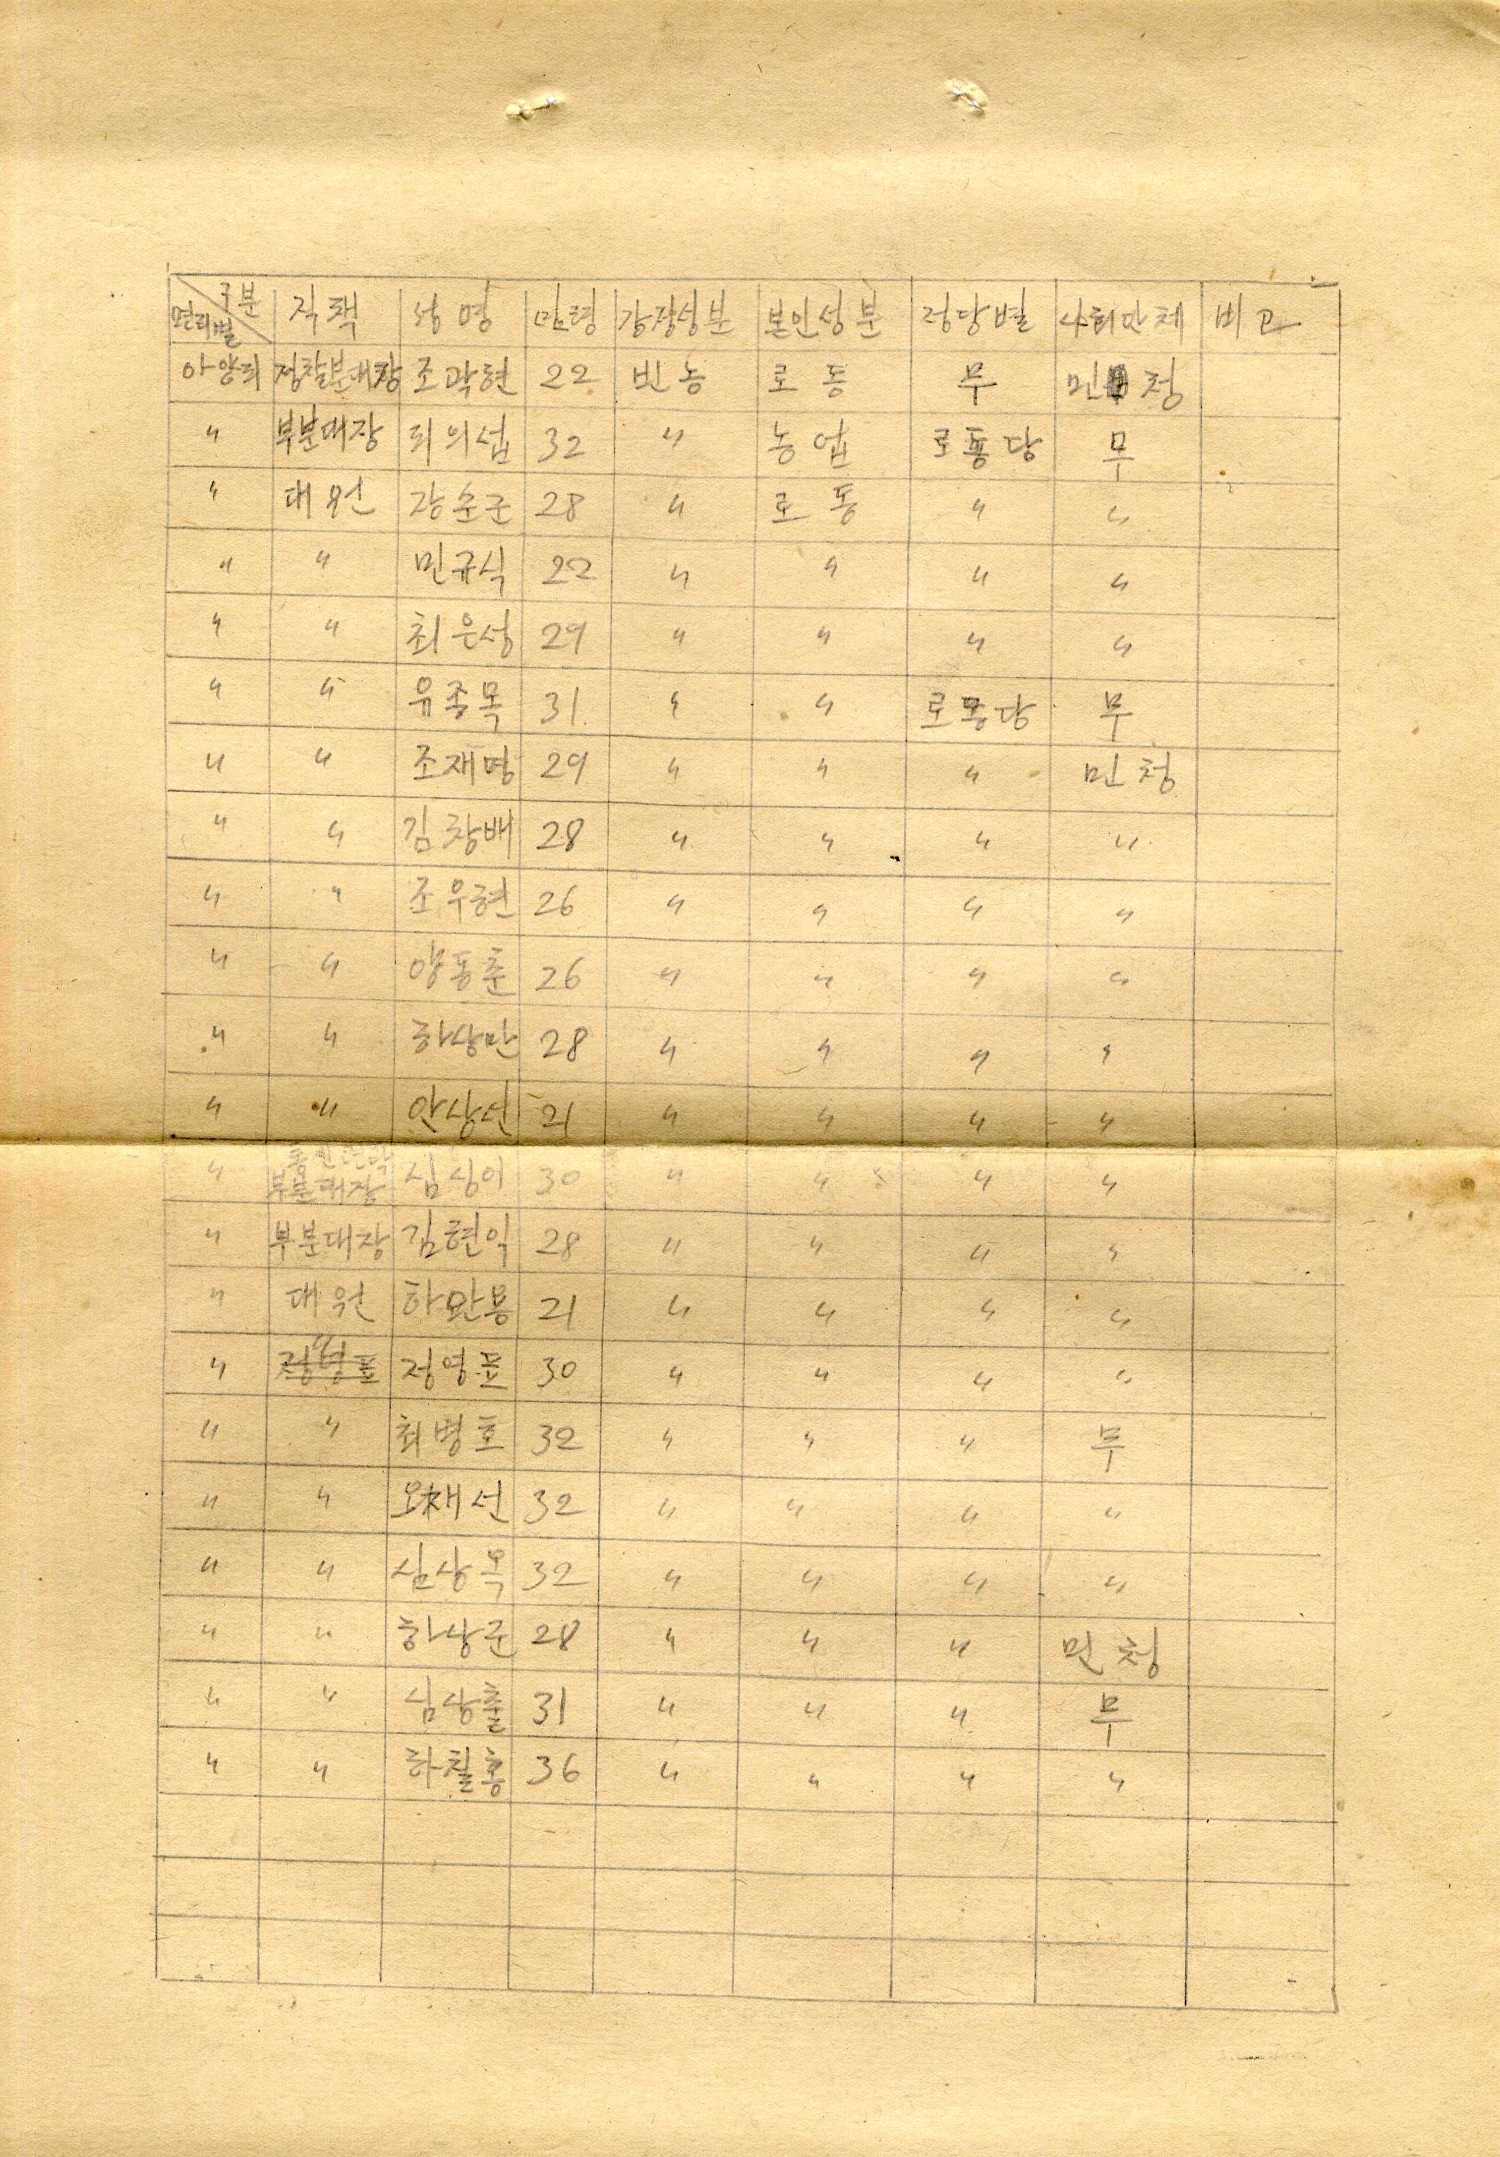 구분 면리별 직책 성명 만령 가정성분 본인성분 정당별 사회단체 비고
아양리 정찰분대장 조곽현 22 빈농 로동 무 민청
〃 부분대장 리의섭 32 〃 농업 로동당 무
〃 대원 강순군 28 〃 로동 〃 〃
〃 〃 민규식 22 〃 〃 〃 〃
〃 〃 최은성 29 〃 〃 〃 〃
〃 〃 유종목 31 〃 〃 로동당 무
〃 〃 조재명 29 〃 〃 〃 민청
〃 〃 김창배 28 〃 〃 〃 〃
〃 〃 조우현 26 〃 〃 〃 〃
〃 〃 양동춘 26 〃 〃 〃 〃
〃 〃 하상만 28 〃 〃 〃 〃
〃 〃 안상선 21 〃 〃 〃 〃
〃 부분대장 심상이 30 〃 〃 〃 〃
〃 부분대장 김현익 28 〃 〃 〃 〃
〃 대원 하만용 21 〃 〃 〃 〃
〃 〃 정영표 30 〃 〃 〃 〃
〃 〃 최병호 32 〃 〃 〃 무
〃 〃 오재선 32 〃 〃 〃 〃
〃 〃 심상옥 32 〃 〃 〃 〃
〃 〃 하상군 28 〃 〃 〃 민청
〃 〃 심상출 31 〃 〃 〃 무
〃 〃 하칠홍 36 〃 〃 〃 〃